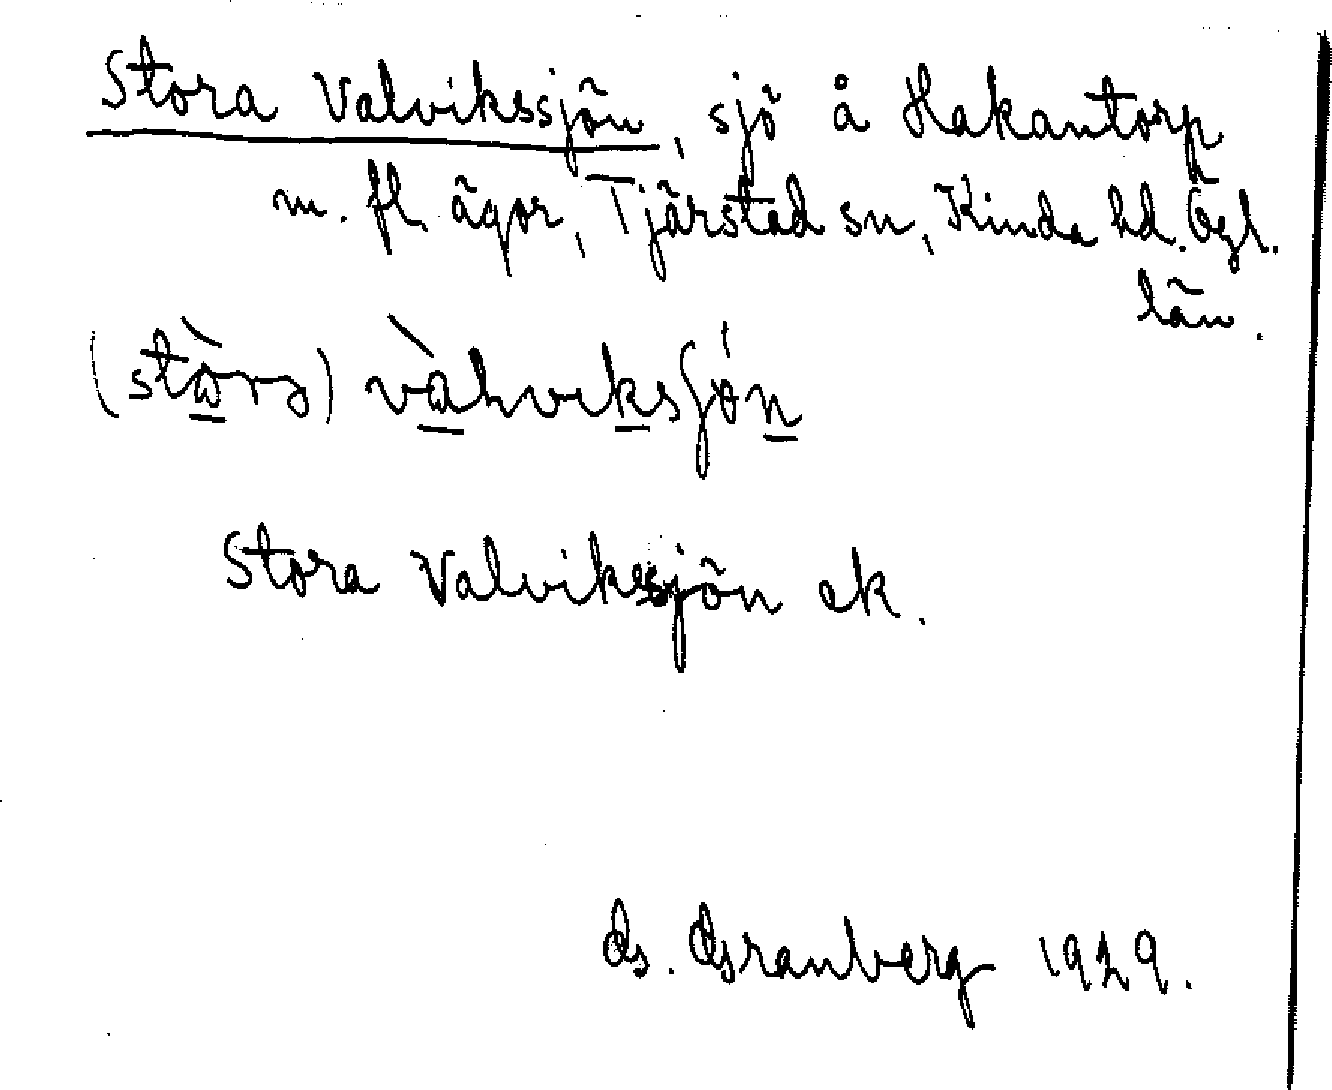 Stora Valvikssjön, sjö å Hakantorp
m. fl. ägor, Tjärstad sn, Kinda hd. Ögl.
län.
(stòrə) vàlviksjón
Stora Valvikssjön ek.
G. Granberg 1929.